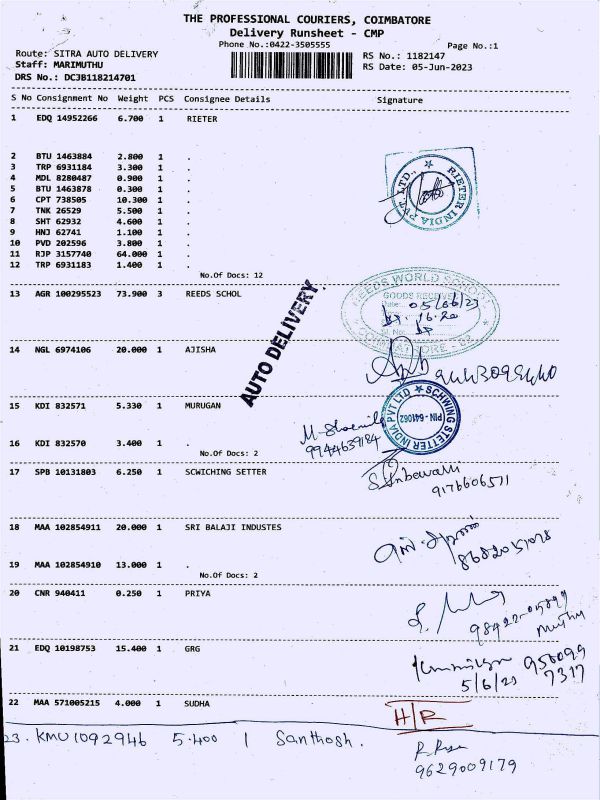 THE PROFESSIONAL COURIERS, COIMBATORE
Delivery Runsheet - CMP
Phone No.:0422-3505555
Page No.:1
Route: SITRA AUTO DELIVERY
RS No.: 1182147
Staff: MARIMUTHU
RS Date: 05-Jun-2023
DRS No.: DCJB118214701
S No Consignment No Weight PCS Consignee Details Signature
1 EDQ 14952266 6.700 1 RIETER
2 BTU 1463884 2.800 1 .
3 TRP 6931184 3.300 1 .
4 MDL 8280487 0.900 1 .
5 BTU 1463878 0.300 1 .
6 CPT 738505 10.300 1 .
7 TNK 26529 5.500 1 .
8 SHT 62932 4.600 1 .
9 HNJ 62741 1.100 1 .
10 PVD 202596 3.800 1 .
11 RJP 3157740 64.000 1 .
12 TRP 6931183 1.400 1 .
RIETER INDIA PVT. LTD.,
No.Of Docs: 12
13 AGR 100295523 73.900 3 REEDS SCHOL
REEDS WORLD SCHOOL
GOODS RECEIVED
05/06/23
16.20
AUTO DELIVERY
14 NGL 6974106 20.000 1 AJISHA
15 KDI 832571 5.330 1 MURUGAN
SCHWING STETTER INDIA PVT LTD
PIN - 641062
16 KDI 832570 3.400 1 .
9944639184
No.Of Docs: 2
17 SPB 10131803 6.250 1 SCWICHING SETTER
9176606571
18 MAA 102854911 20.000 1 SRI BALAJI INDUSTES
19 MAA 102854910 13.000 1 .
No.Of Docs: 2
20 CNR 940411 0.250 1 PRIYA
21 EDQ 10198753 15.400 1 GRG
950099
5/6/23 7317
22 MAA 571005215 4.000 1 SUDHA
H/R
23. KMU1092946 5.400 1 Santhosh.
9629009179